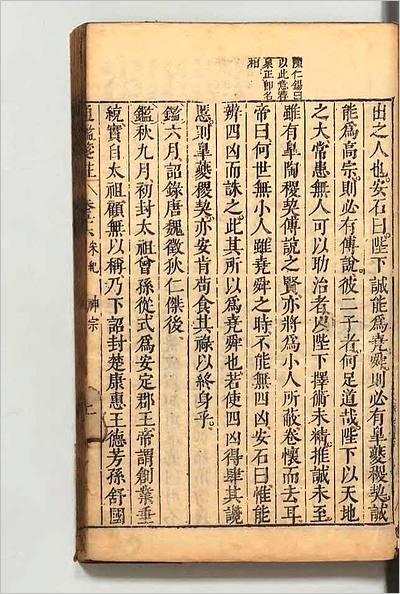 陳仁錫曰
以此意釋
稟正卽名
相
出之人也安石曰陛下誠能爲堯舜則必有皐夔稷契誠
能爲高宗則必有傅說彼二子者何足道哉陛下以天地
之大常患無人可以助治者以陛下擇術未精推誠未至
雖有皐陶稷契傅說之賢亦將爲小人所蔽卷懷而去耳
帝曰何世無小人雖堯舜之時不能無四凶安石曰惟能
辨四凶而誅之此其所以爲堯舜也若使四凶得肆其讒
慝則皐夔稷契亦安肯苟食其祿以終身乎
鑑六月詔錄唐魏徵狄仁傑後
鑑秋九月初封太祖曾孫從式爲安定郡王帝謂創業垂
統實自太祖顧無以稱乃下詔封楚康惠王德芳孫舒國
通鑑箋註 卷 宋紀 神宗